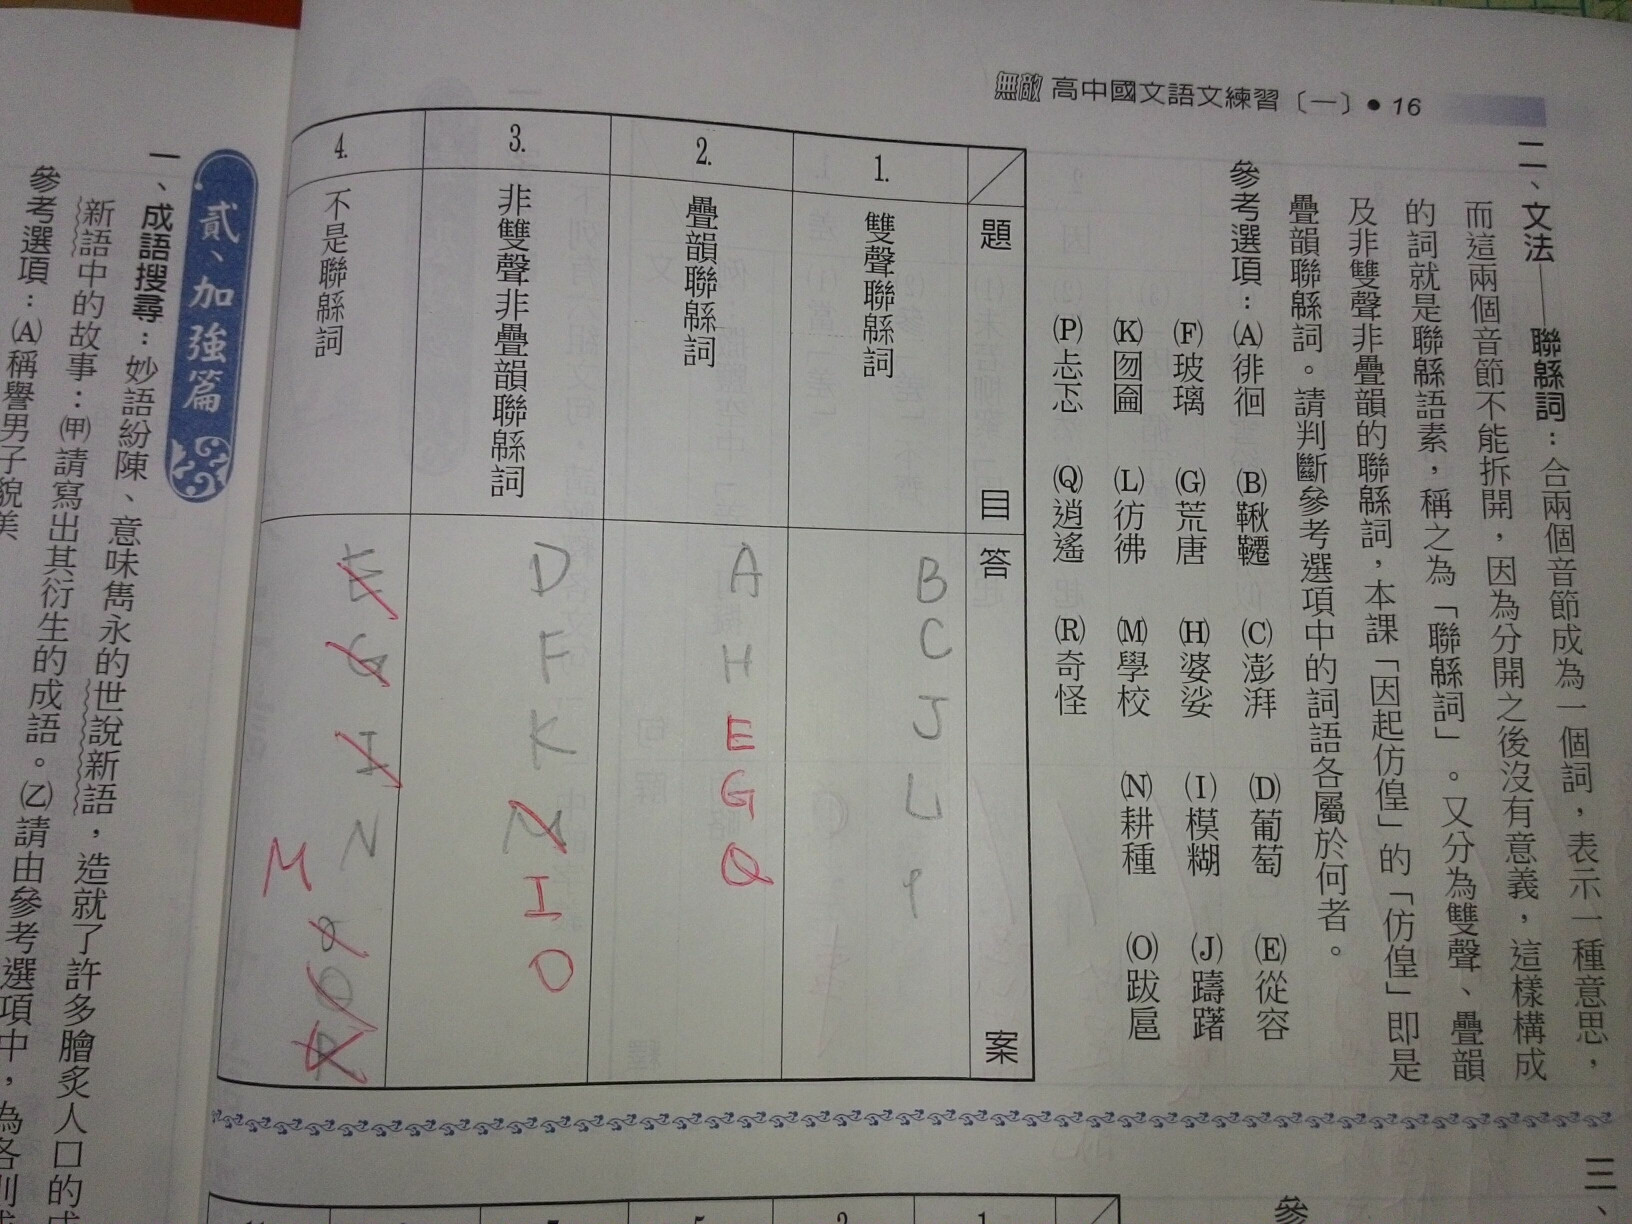 無敵 高中國文語文練習〔一〕● 16
二、文法——聯緜詞：合兩個音節成為一個詞，表示一種意思，
而這兩個音節不能拆開，因為分開之後沒有意義，這樣構成
的詞就是聯緜語素，稱之為「聯緜詞」。又分為雙聲、疊韻
及非雙聲非疊韻的聯緜詞，本課「因起仿偟」的「仿偟」即是
疊韻聯緜詞。請判斷參考選項中的詞語各屬於何者。
參考選項：(A)徘徊 (B)鞦韆 (C)澎湃 (D)葡萄 (E)從容
(F)玻璃 (G)荒唐 (H)婆娑 (I)模糊 (J)躊躇
(K)囫圇 (L)彷彿 (M)學校 (N)耕種 (O)跋扈
(P)忐忑 (Q)逍遙 (R)奇怪
題目 答案
1. 雙聲聯緜詞 B C J L P
2. 疊韻聯緜詞 A H E G Q
3. 非雙聲非疊韻聯緜詞 D F K M I O
4. 不是聯緜詞 E G I N M Q O R
貳、加強篇
一、成語搜尋：妙語紛陳、意味雋永的世說新語，造就了許多膾炙人口的成
新語中的故事：(甲)請寫出其衍生的成語。(乙)請由參考選項中，為各則成
參考選項：(A)稱譽男子貌美
三、
參
1.